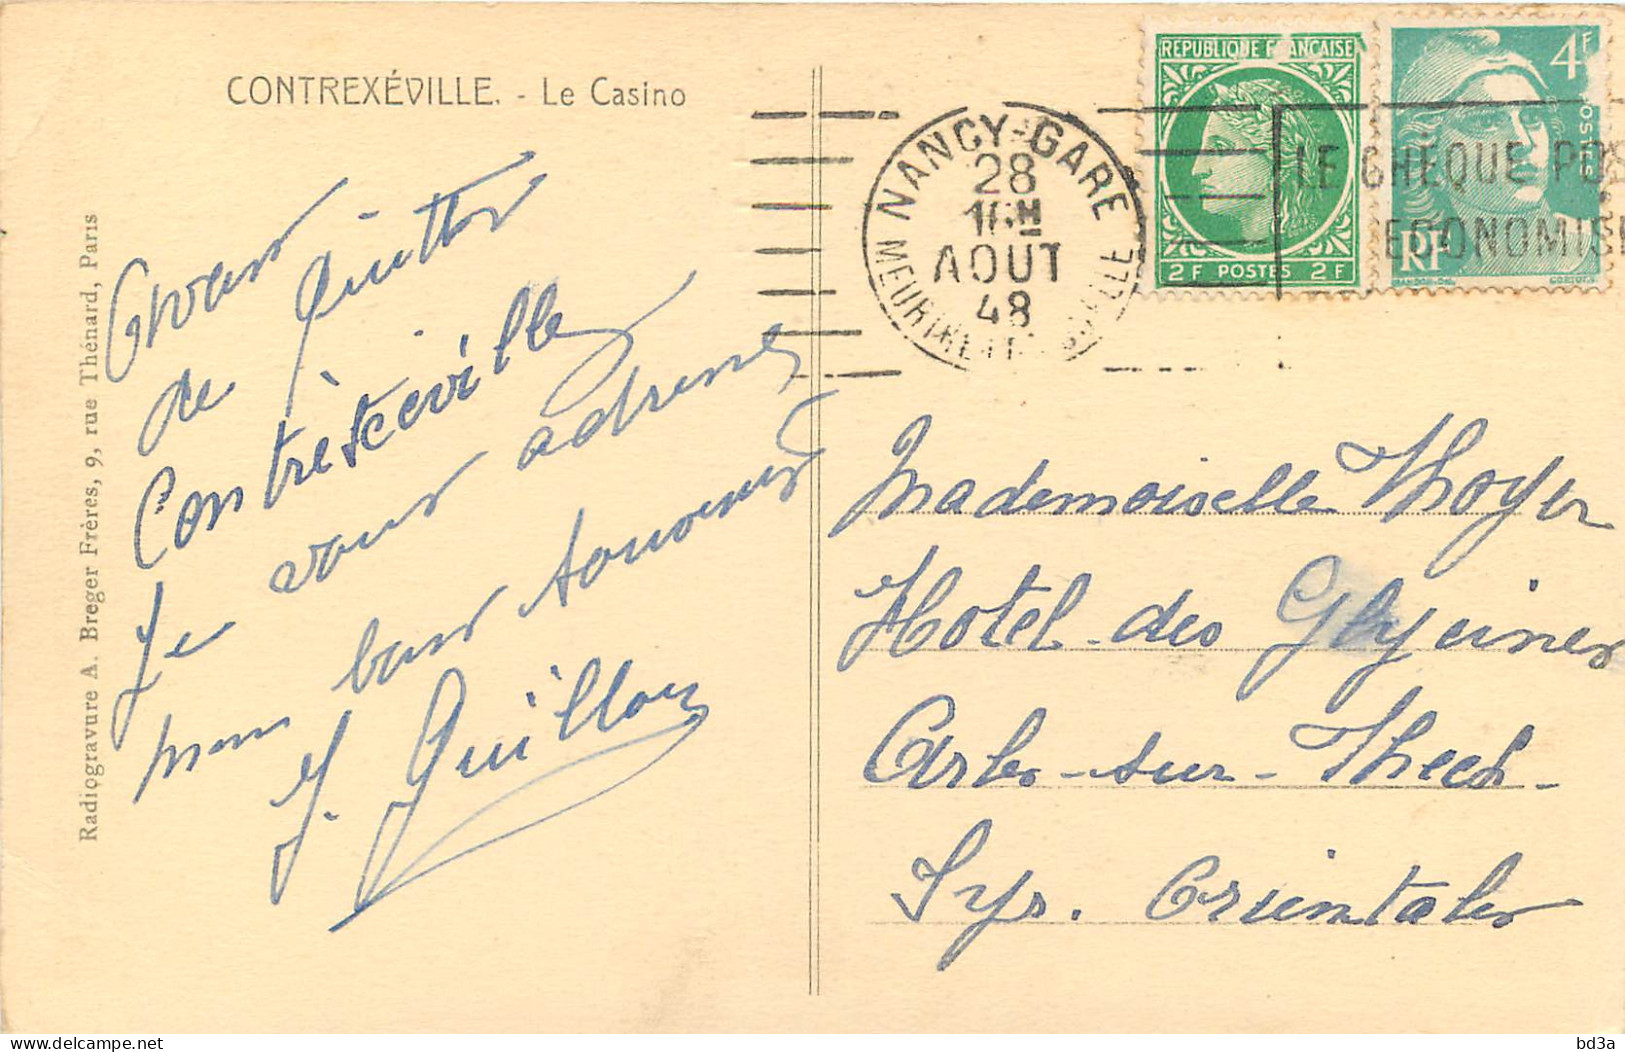 CONTREXÉVILLE. - Le Casino
Radiogravure A. Breger Frères, 9, rue Thénard, Paris
Avant
de quitter
Contrèxeville
je vous adresse
mon bon souvenir
J. Guillou
NANCY-GARE
28
16H
AOUT
48
MEURTHE ET MOSELLE
REPUBLIQUE FRANCAISE
2 F POSTES 2 F
4F
POSTES
RF
LE CHÈQUE PO
ECONOMISE
Mademoiselle Thoyer
Hotel des Glycines
Arles-sur-Thech-
Pyr. Orientales
delcampe.net
bd3a